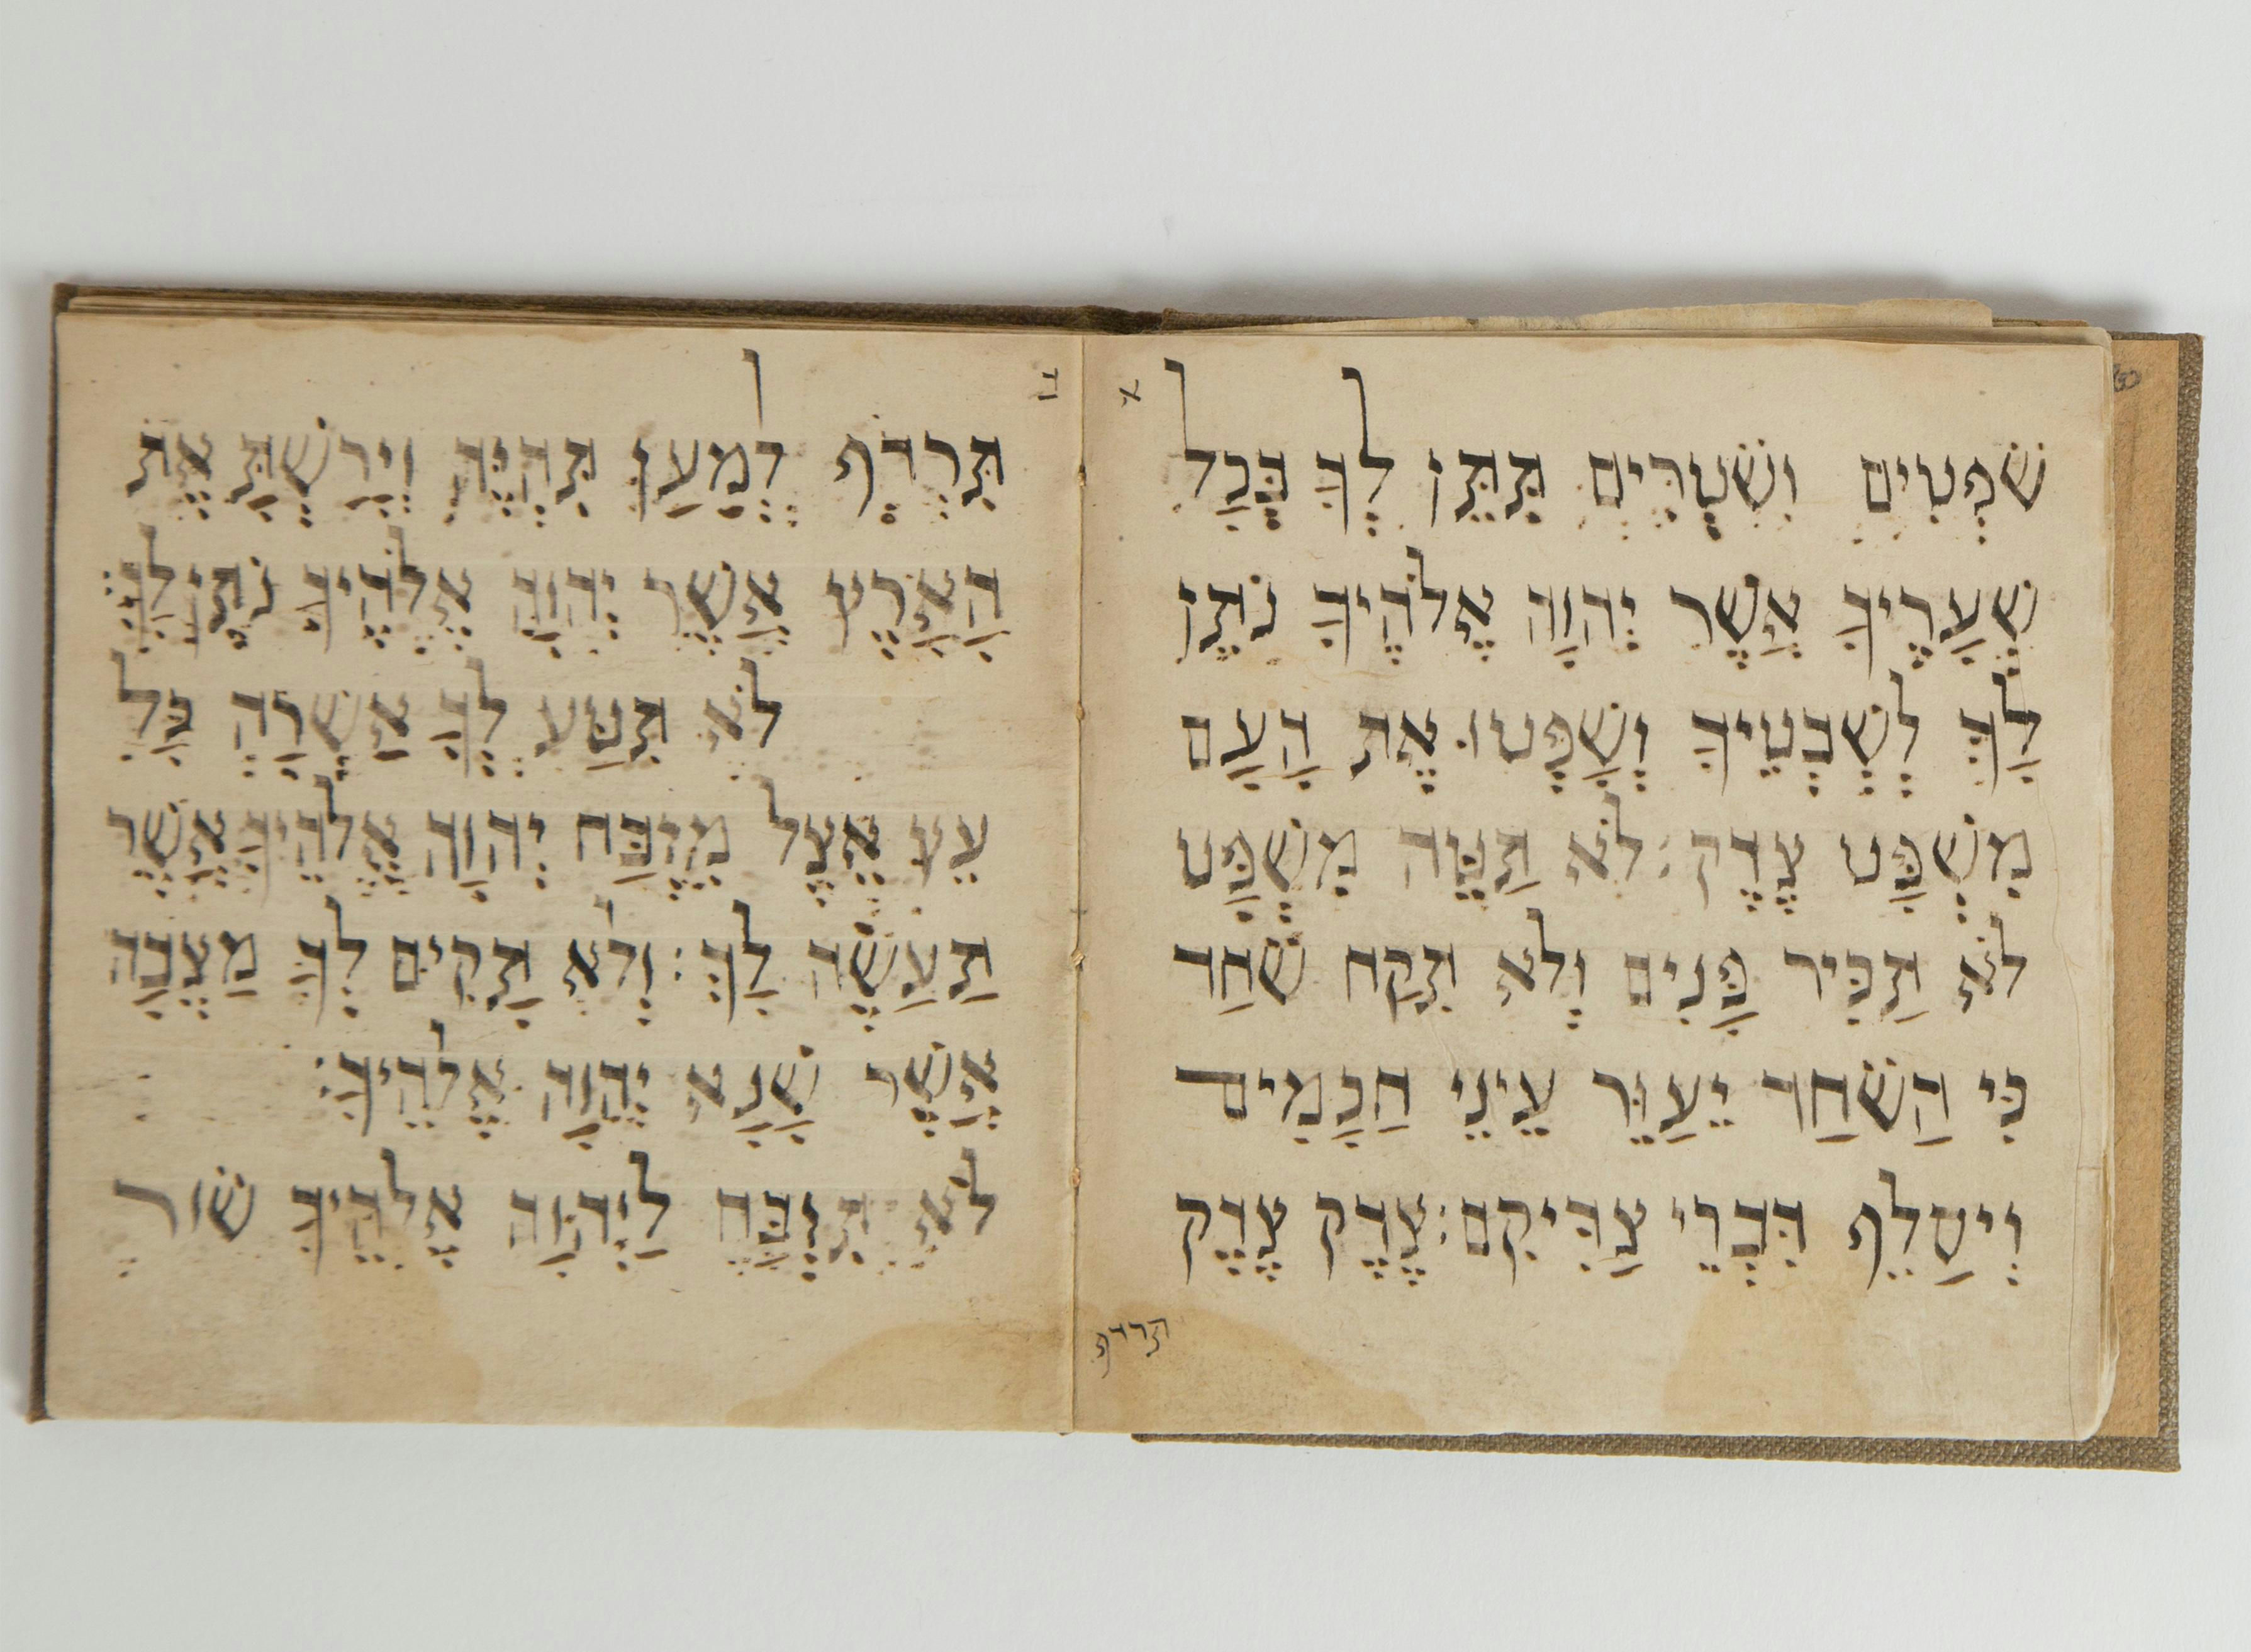 א
שֹׁפְטִים וְשֹׁטְרִים תִּתֶּן לְךָ בְּכָל
שְׁעָרֶיךָ אֲשֶׁר יְהוָה אֱלֹהֶיךָ נֹתֵן
לְךָ לִשְׁבָטֶיךָ וְשָׁפְטוּ אֶת הָעָם
מִשְׁפַּט צֶדֶק: לֹא תַטֶּה מִשְׁפָּט
לֹא תַכִּיר פָּנִים וְלֹא תִקַּח שֹׁחַד
כִּי הַשֹּׁחַד יְעַוֵּר עֵינֵי חֲכָמִים
וִיסַלֵּף דִּבְרֵי צַדִּיקִם: צֶדֶק צֶדֶק
תרדף
ב
תִּרְדֹּף לְמַעַן תִּחְיֶה וְיָרַשְׁתָּ אֶת
הָאָרֶץ אֲשֶׁר יְהוָה אֱלֹהֶיךָ נֹתֵן לָךְ:
לֹא תִטַּע לְךָ אֲשֵׁרָה כָּל
עֵץ אֵצֶל מִזְבַּח יְהוָה אֱלֹהֶיךָ אֲשֶׁר
תַּעֲשֶׂה לָּךְ: וְלֹא תָקִים לְךָ מַצֵּבָה
אֲשֶׁר שָׂנֵא יְהוָה אֱלֹהֶיךָ:
לֹא תִזְבַּח לַיהוָה אֱלֹהֶיךָ שׁוֹר